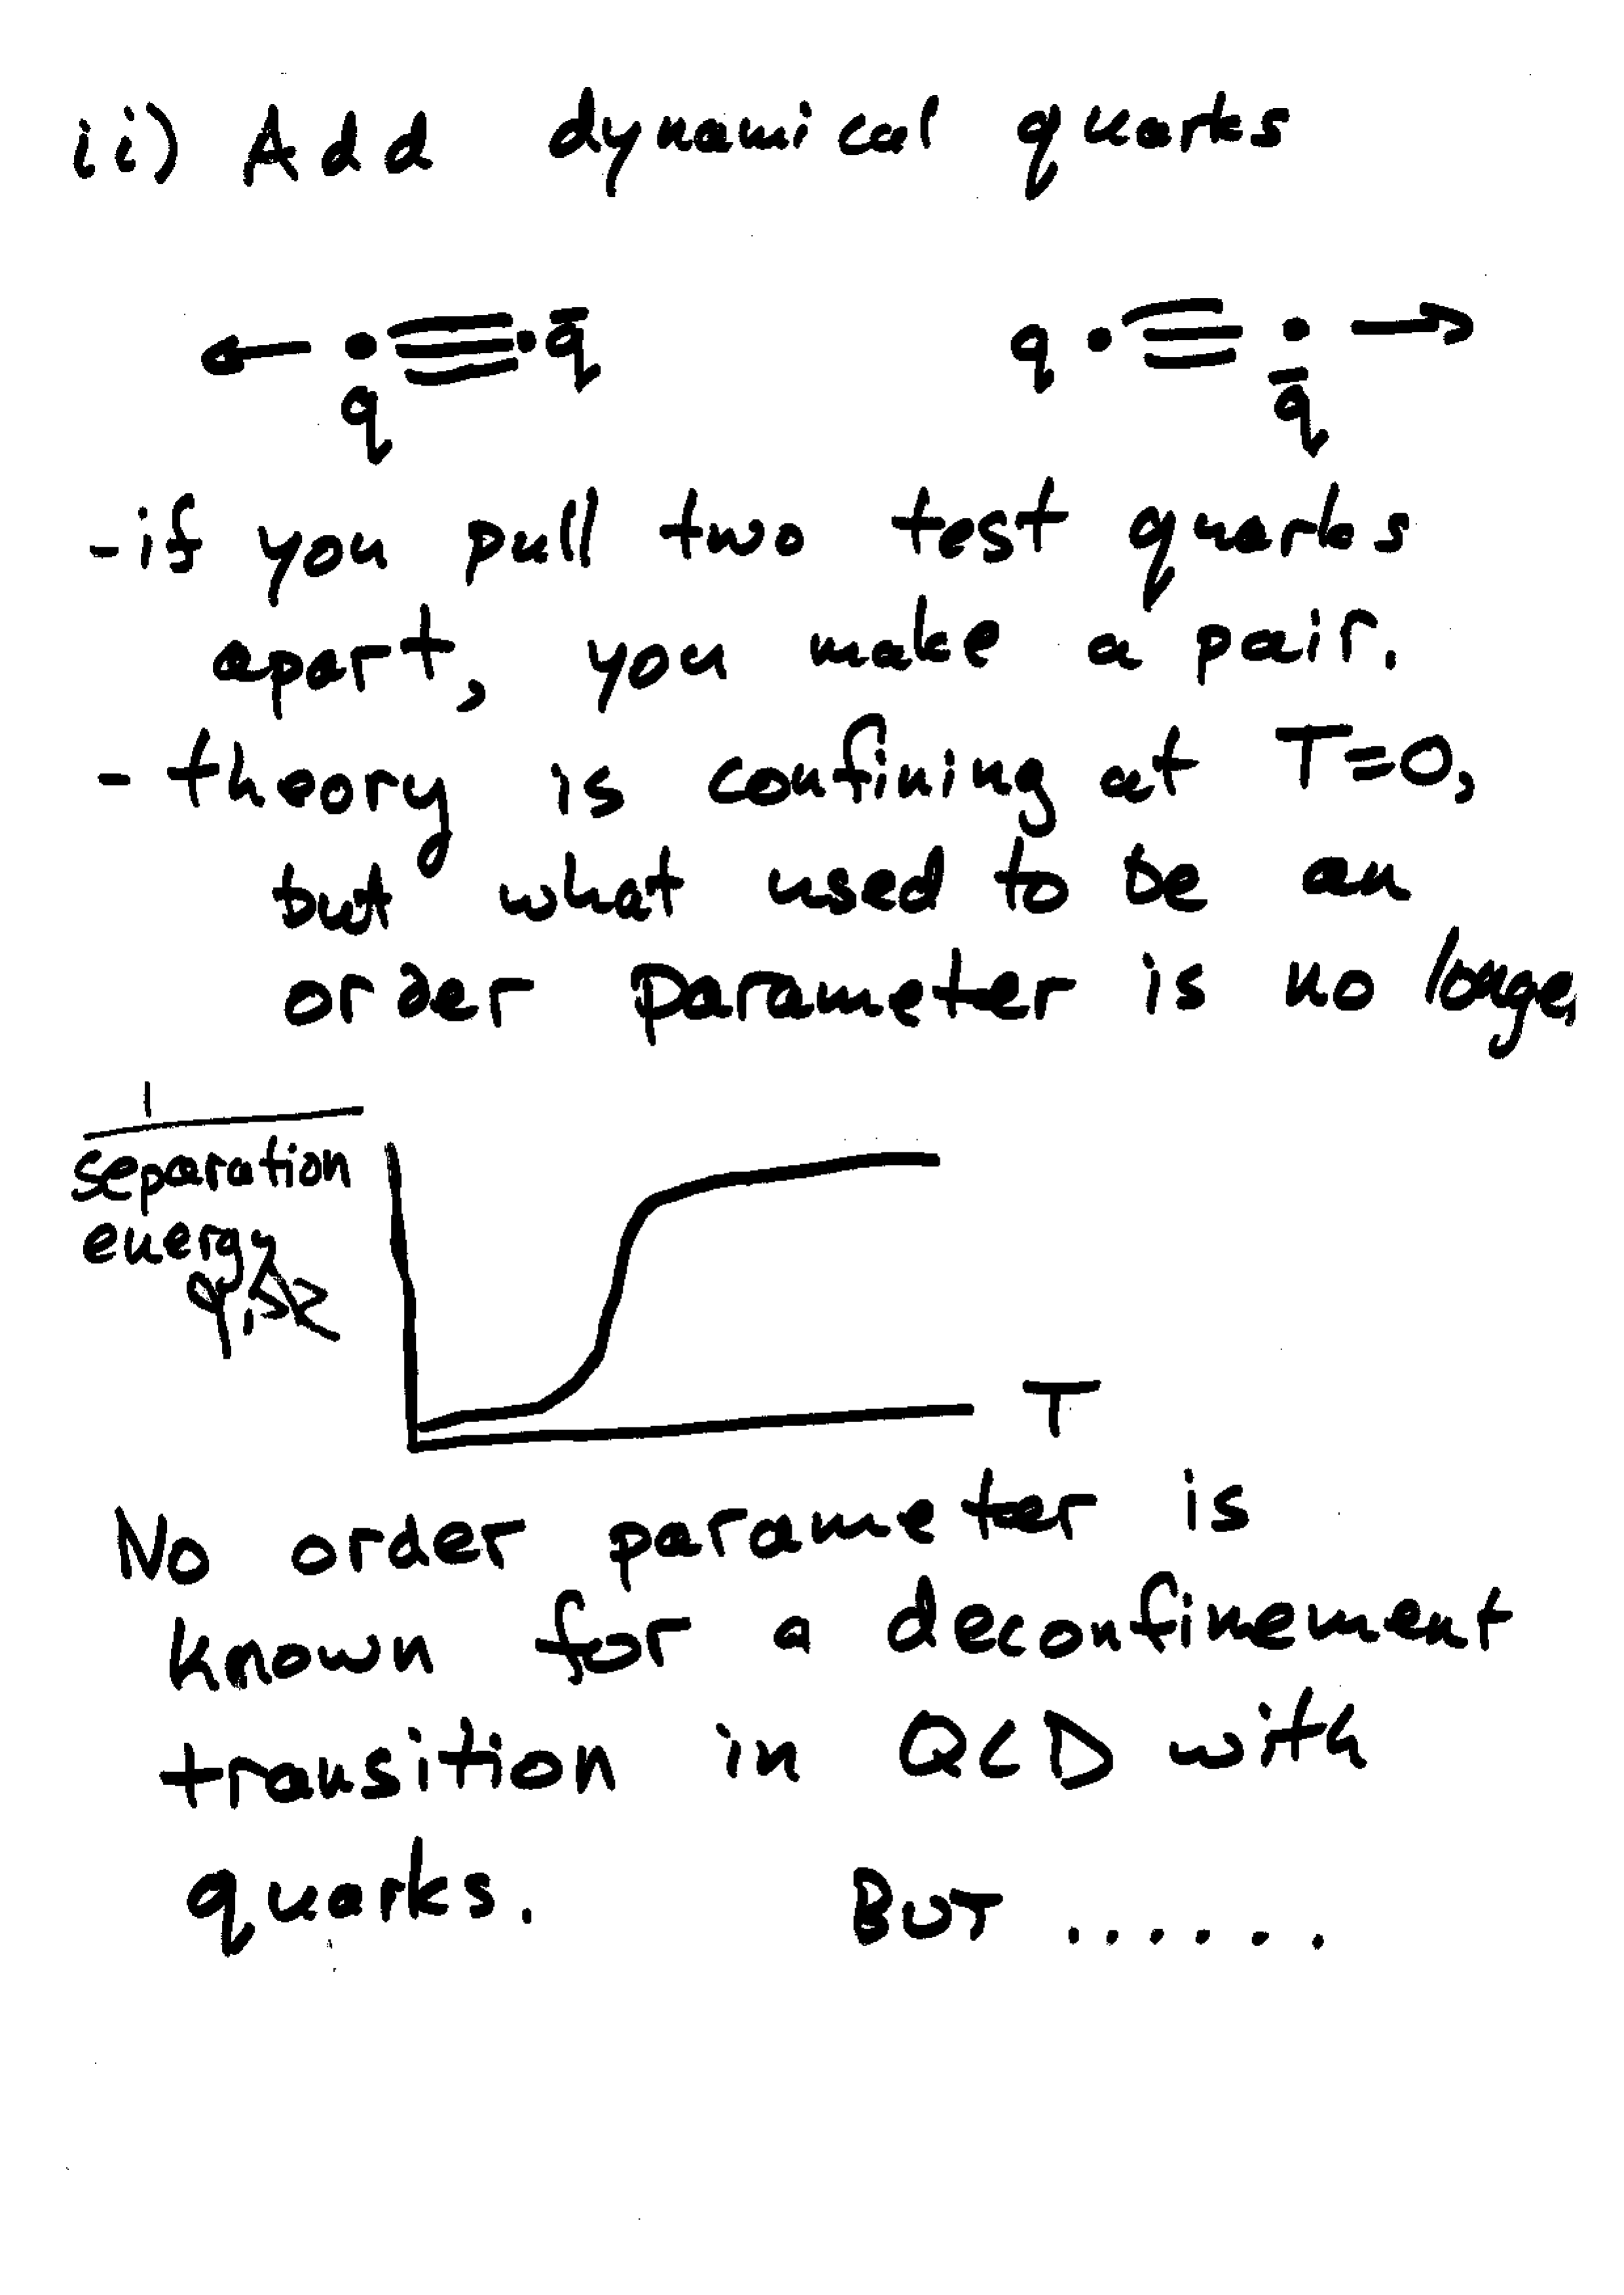 ii) Add dynamical quarks
q q̄ q q̄
- if you pull two test quarks
apart, you make a pair.
- theory is confining at T=0,
but what used to be an
order parameter is no longer
1
separation
energy
T
No order parameter is
known for a deconfinement
transition in QCD with
quarks. BUT ......